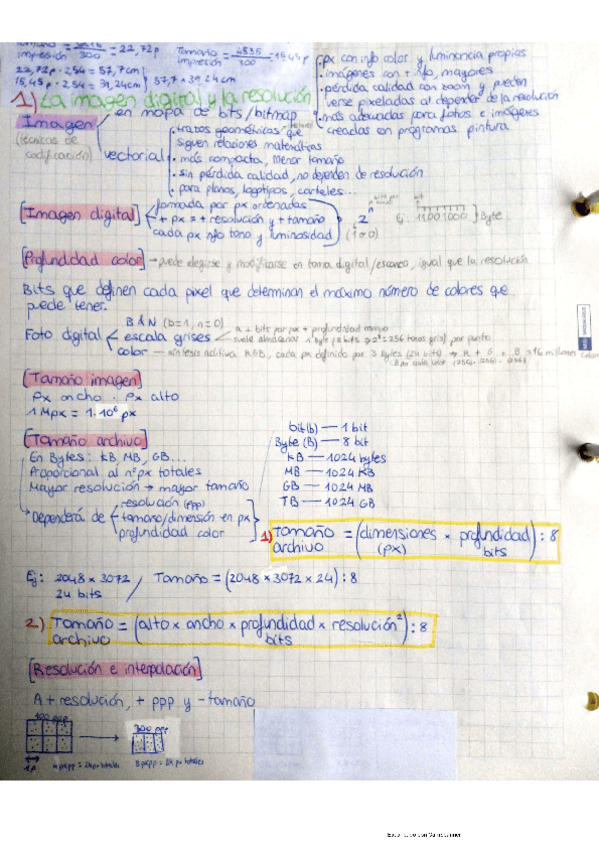 Tamaño impresión = /300 = 22,72p
Tamaño impresión = 4535/300 = 15,45p
22,72p · 2,54 = 57,7cm
15,45p · 2,54 = 39,24cm } 57,7 x 39,24cm
· px con info color y luminancia propias
· imágenes con + info, mayores
· pérdida calidad con zoom y pueden
verse pixeladas al depender de la resolución
· más adecuadas para fotos e imágenes
creadas en programas pintura
1) La imagen digital y la resolución
Imagen
(técnicas de
codificación)
en mapa de bits/bitmap
vectorial
· tratos geométricos que
siguen relaciones matemáticas
· más compacta, menor tamaño
· sin pérdida calidad, no dependen de resolución
· para planos, logotipos, carteles...
[Imagen digital]
formada por px ordenadas
+ px = + resolución y + tamaño
cada px info tono y luminosidad
2ⁿ
(1 o 0)
Ej: 11001000 } 1Byte
[Profundidad color] → puede elegirse y modificarse en toma digital/escaneo, igual que la resolución
Bits que definen cada pixel que determinan el máximo número de colores que
puede tener.
Foto digital
B&N (b=1, n=0)
escala grises
a + bits por px + profundidad
suele almacenar 1 byte (8 bits → 2⁸ = 256 tonos gris) por punto
color — síntesis aditiva RGB, cada px definido por 3 bytes (24 bits) → R + G + B = 16 millones
[Tamaño imagen]
px ancho · px alto
1 Mpx = 1·10⁶ px
[Tamaño archivo]
En Bytes: KB, MB, GB...
Proporcional al nº px totales
Mayor resolución → mayor tamaño
Dependerá de
resolución (ppp)
tamaño/dimensión en px
profundidad color
bit(b) — 1 bit
Byte (B) — 8 bit
KB — 1024 bytes
MB — 1024 KB
GB — 1024 MB
TB — 1024 GB
1) Tamaño archivo = (dimensiones (px) x profundidad bits) : 8
Ej: 2048 x 3072
24 bits
/ Tamaño = (2048 x 3072 x 24) : 8
2) Tamaño archivo = (alto x ancho x profundidad bits x resolución²) : 8
[Resolución e interpolación]
A + resolución, + ppp y - tamaño
300 ppp